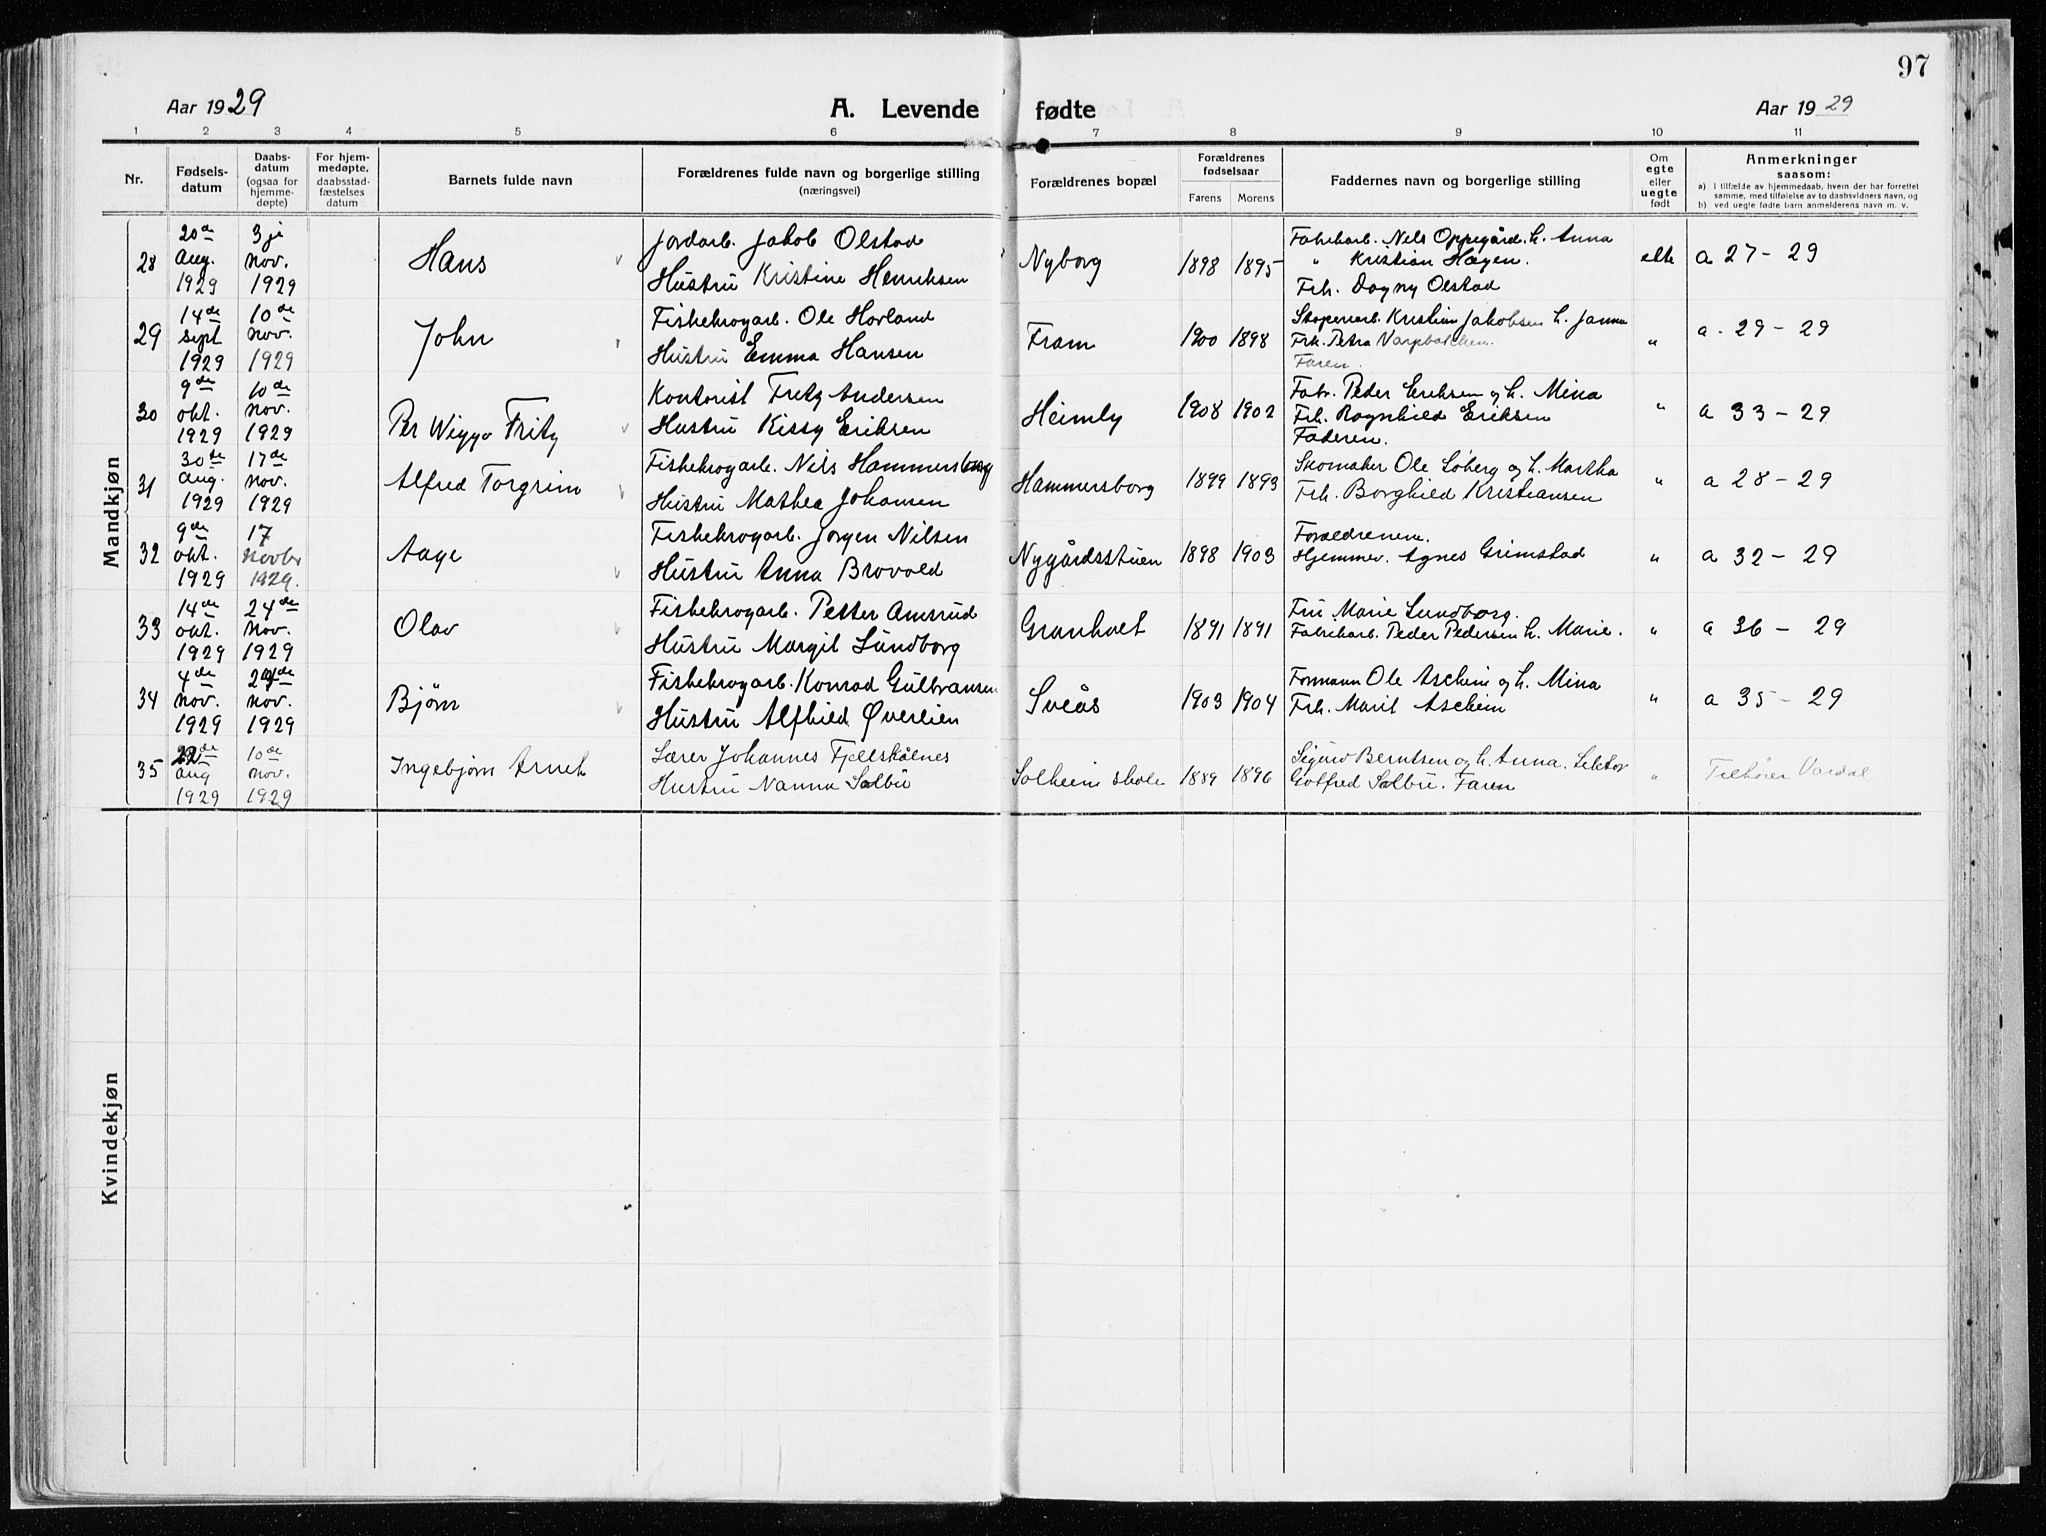 97
Aar 1929
A. Levende fødte
Aar 1929
1 2 3 4 5 6 7 8 9 10 11
Nr.
Fødsels-
datum
Daabs-
datum
(ogsaa for
hjemme-
døpte)
For hjem-
medøpte,
daabsstad-
fæstelses
datum
Barnets fulde navn
Forældrenes fulde navn og borgerlige stilling
(næringsvei)
Forældrenes bopæl
Forældrenes
fødselsaar
Farens Morens
Faddernes navn og borgerlige stilling
Om
egte
eller
uegte
født
Anmerkninger
saasom:
a) i tilfælde av hjemmedaab, hvem der har forrettet
samme, med tilføielse av to daabsvidners navn, og
b) ved uegte fødte barn anmelderens navn m. v.
Mandkjøn
28
20de
Aug.
1929
3je
Nov.
1929
Hans
Jordarb. Jakob Olstad
Hustru Kristine Henriksen
Nyborg
1898 1895
Fabrikarb. Nels Oppegård. h. Anna
" Kristian Hagen.
Frk. Dagny Olstad
ekte
a 27 - 29
29
14de
sept
1929
10de
Nov.
1929
John
Fiskekrogarb. Ole Hovland
Hustru Emma Hansen
Fram
1900 1898
Kristian Jakobsen h. Janna
Frk. Petra
Faren.
"
a. 29 - 29
30
9de
okt.
1929
10de
Nov.
1929
Per Wiggo Fritz
Kontorist Fritz Andersen
Hustru Kissy Eriksen
Heimly
1908 1902
Fabr. Peder Eriksen og h. Mina
Frk. Ragnhild Eriksen
Faderen.
"
a 33 - 29
31
30te
Aug.
1929
17de
Nov.
1929
Alfred Torgrim
Fiskekrogarb. Nils Hammersborg
Hustru Mathea Johansen
Hammersborg
1899 1893
Skomaker Ole Løberg og h. Martha
Frk. Borghild Kristiansen
"
a 28 - 29
32
9de
okt.
1929
17
Novbr
1929.
Aage
Fiskekrogarb. Jørgen Nilsen
Hustru Anna Brovold
Nygårdsstuen
1898 1903
Foreldrenene.
Hjemmev. Agnes Grimstad
"
a 32 - 29
33
14de
okt.
1929
24de
Nov.
1929
Olav
Fiskekrogarb. Petter Amsrud
Hustru Margit Lundborg
Granholt
1891 1891
Fru Marie Lundborg.
Fabrikarb. Peder Pedersen h. Marie.
"
a 36 - 29
34
4de
Nov.
1929
24de
Nov.
1929
Bjørn
Fiskekrogarb. Konrad Gulbransen
Hustru Alfhild Øverlien
Sveås
1903 1904
Formann Ole Aschim og h. Mina
Frk. Marit Aschim
"
a 35 - 29
35
22de
aug
1929
10de
nov.
1929
Ingebjørn Arnet
Lærer Johannes Fjellskålnes
Hustru Nanna Sælbu
Solheim skole
1889 1896
Sigurd Berntsen og h. Anna. Lektor
Gotfred Sælbu. Faren
"
Tilhører Vardal
Kvindekjøn